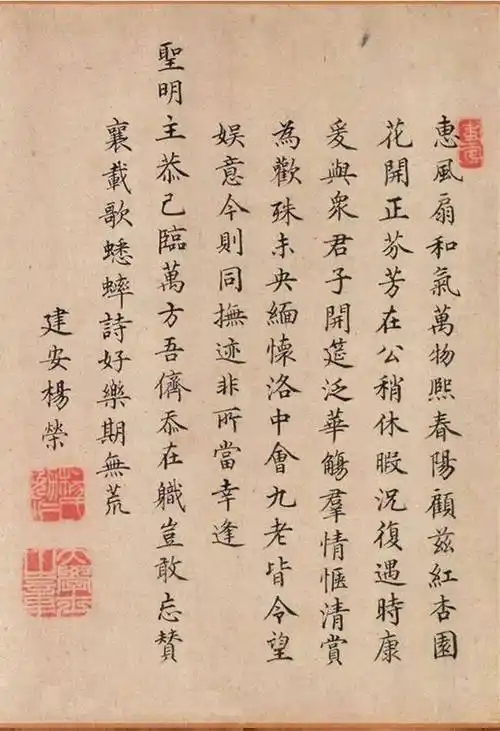 惠風扇和氣萬物熙春陽顧兹紅杏園
花開正芬芳在公稍休暇況復遇時康
爰與衆君子開筵泛華觴羣情愜清賞
為歡殊未央緬懷洛中會九老皆令望
娱意今則同撫迹非所當幸逢
聖明主恭己臨萬方吾儕忝在職豈敢忘賛
襄載歌蟋蟀詩好樂期無荒
建安楊榮